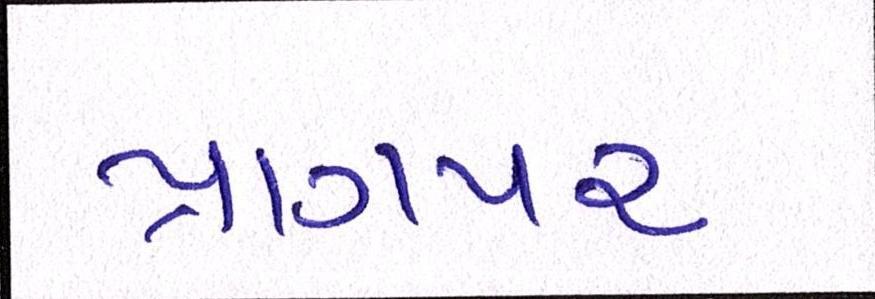 પ્રાગપર